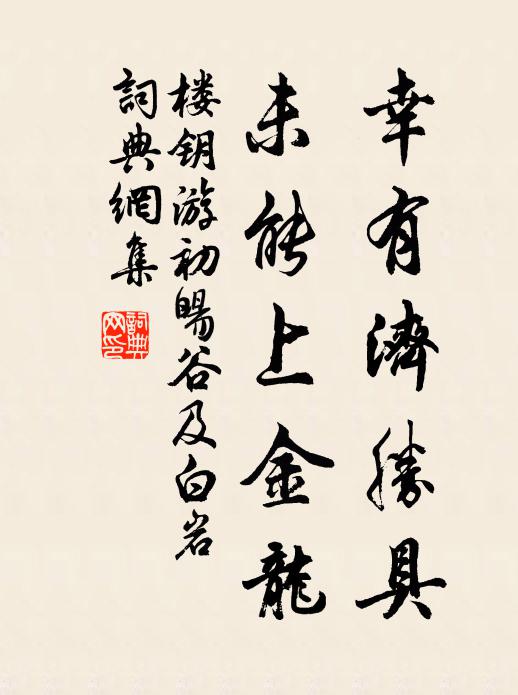 幸有濟勝具
未能上金龍
楼钥游初暘谷及白岩
詞典網集
詞典
网印